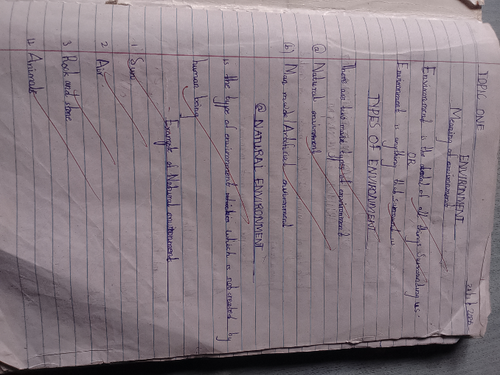 TOPIC ONE
ENVIRONMENT
Meaning of environment
Environment is the total of all things surrounding us.
OR
Environment is anything that surround us
TYPES OF ENVIRONMENT
There are two main types of environment
(a) Natural environment
(b) Man environment
(a) NATURAL ENVIRONMENT
is the type of environment which is not created by
human being
Example of Natural environment
1 Sun
2 Air
3 Rock and stone
4 Animals